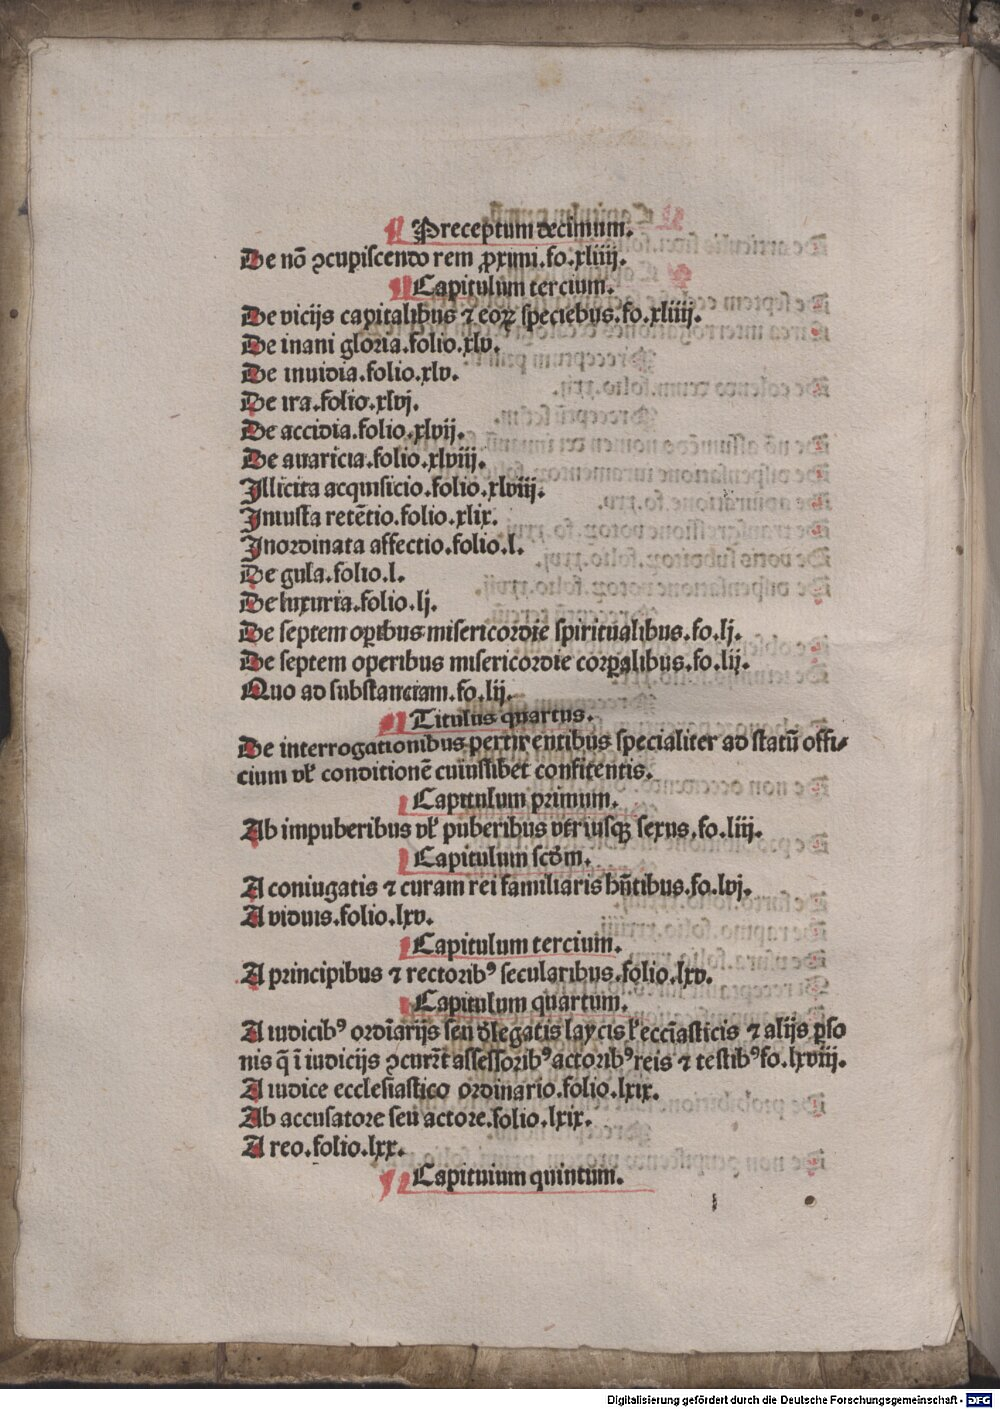 ¶ Preceptum decimum.
De nō ꝯcupiscendo rem ꝓximi.fo.xliiij.
¶ Capitulum tercium.
De vicijs capitalibus ⁊ eoꝝ speciebus.fo.xliiij.
De inani gloria.folio.xlv.
De inuidia.folio.xlv.
De ira.folio.xlvj.
De accidia.folio.xlvij.
De auaricia.folio.xlviij.
Illicita acquisicio.folio.xlviij.
Iniusta retētio.folio.xlix.
Inordinata affectio.folio.l.
De gula.folio.l.
De luxuria.folio.lj.
De septem oꝑibus misericordie spiritualibus.fo.lj.
De septem operibus misericordie corꝑalibus.fo.lij.
Quo ad substanciam.fo.lij.
¶ Titulus quartus.
De interrogationibus pertinentibus specialiter ad statū offi⸗
cium vł conditionē cuiuslibet confitentis.
Capitulum primum.
Ab impuberibus vł puberibus vtriusqꝫ sexus.fo.liij.
Capitulum scdm.
A coniugatis ⁊ curam rei familiaris hñtibus.fo.lvj.
A viduis.folio.lxv.
Capitulum tercium.
A principibus ⁊ rectoribꝰ secularibus.folio.lxv.
Capitulum quartum.
A iudicibꝰ ordīarijs seu delegatis laycis ł ecclāsticis ⁊ alijs ꝑso
nis q̄ ī iudicijs ꝯcurrt assessoribꝰ actoribꝰ reis ⁊ testibꝰ fo.lxviij.
A iudice ecclesiastico ordinario.folio.lxix.
Ab accusatore seu actore.folio.lxix.
A reo.folio.lxx.
¶ Capitulum quintum.
Digitalisierung gefördert durch die Deutsche Forschungsgemeinschaft - DFG